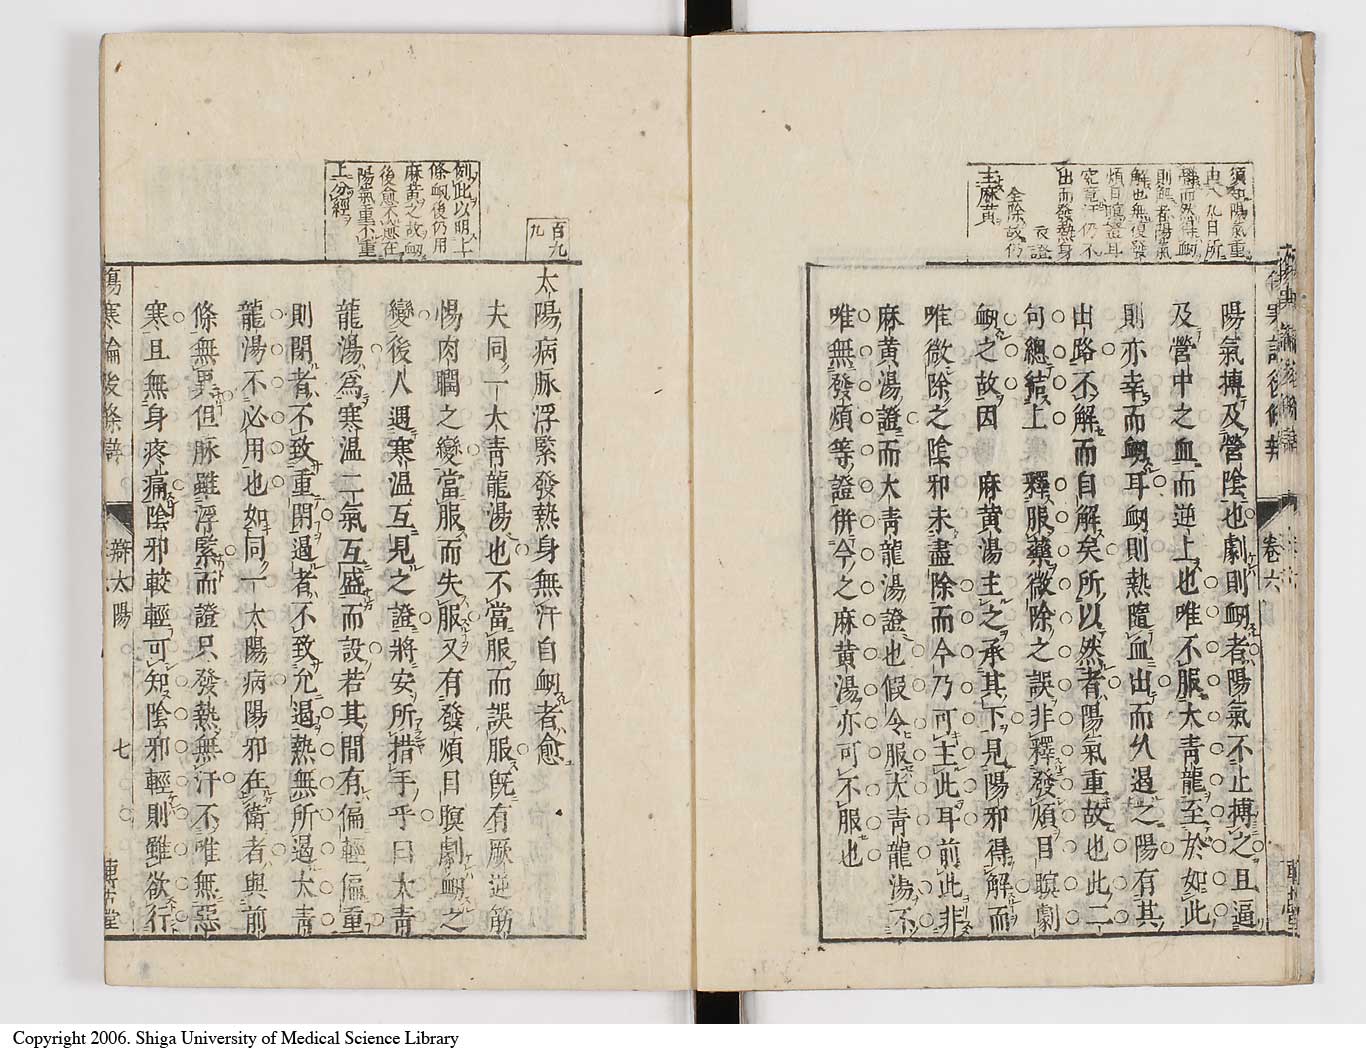 陽氣搏及營陰也劇則衂者陽氣不止搏之且逼
及營中之血而逆上也唯不服大青龍至於如此
則亦幸而衂耳衂則熱隨血出而久遏之陽有其
出路不解而自解矣所以然者陽氣重故也此二
句總結上 釋服藥微除之誤非釋發煩目瞑劇
衂之故因 麻黄湯主之承其下見陽邪得解而
唯微除之陰邪未盡除而今乃可主此耳前此非
麻黄湯證而大青龍湯證也假令服大青龍湯不
唯無發煩等證併今之麻黄湯亦可不服也
主麻黄
全除故仍
出而發熱身
究竟汗仍不
煩目瞑證耳
解也無復發
則解者陽氣
卷六
百九
九
太陽病脉浮緊發熱身無汗自衂者愈
夫同一大青龍湯也不當服而誤服既有厥逆筋
惕肉瞤之變當服而失服又有發煩目瞑劇衂之
變後人遇寒溫互見之證將安所措手乎曰大青
龍湯爲寒溫二氣互盛而設若其間有偏輕偏重
則閉者不致重閉遏者不致允遏熱無所遏大青
龍湯不必用也如同一太陽病陽邪在衛者與前
條無異但脉雖浮緊而證只發熱無汗不唯無惡
寒且無身疼痛陰邪較輕可知陰邪輕則雖欲行
例此以明上
條衂後仍用
麻黄之故衂
後愈不愈在
陽氣重不重
上分經
傷寒論後條辯
辯太陽
七